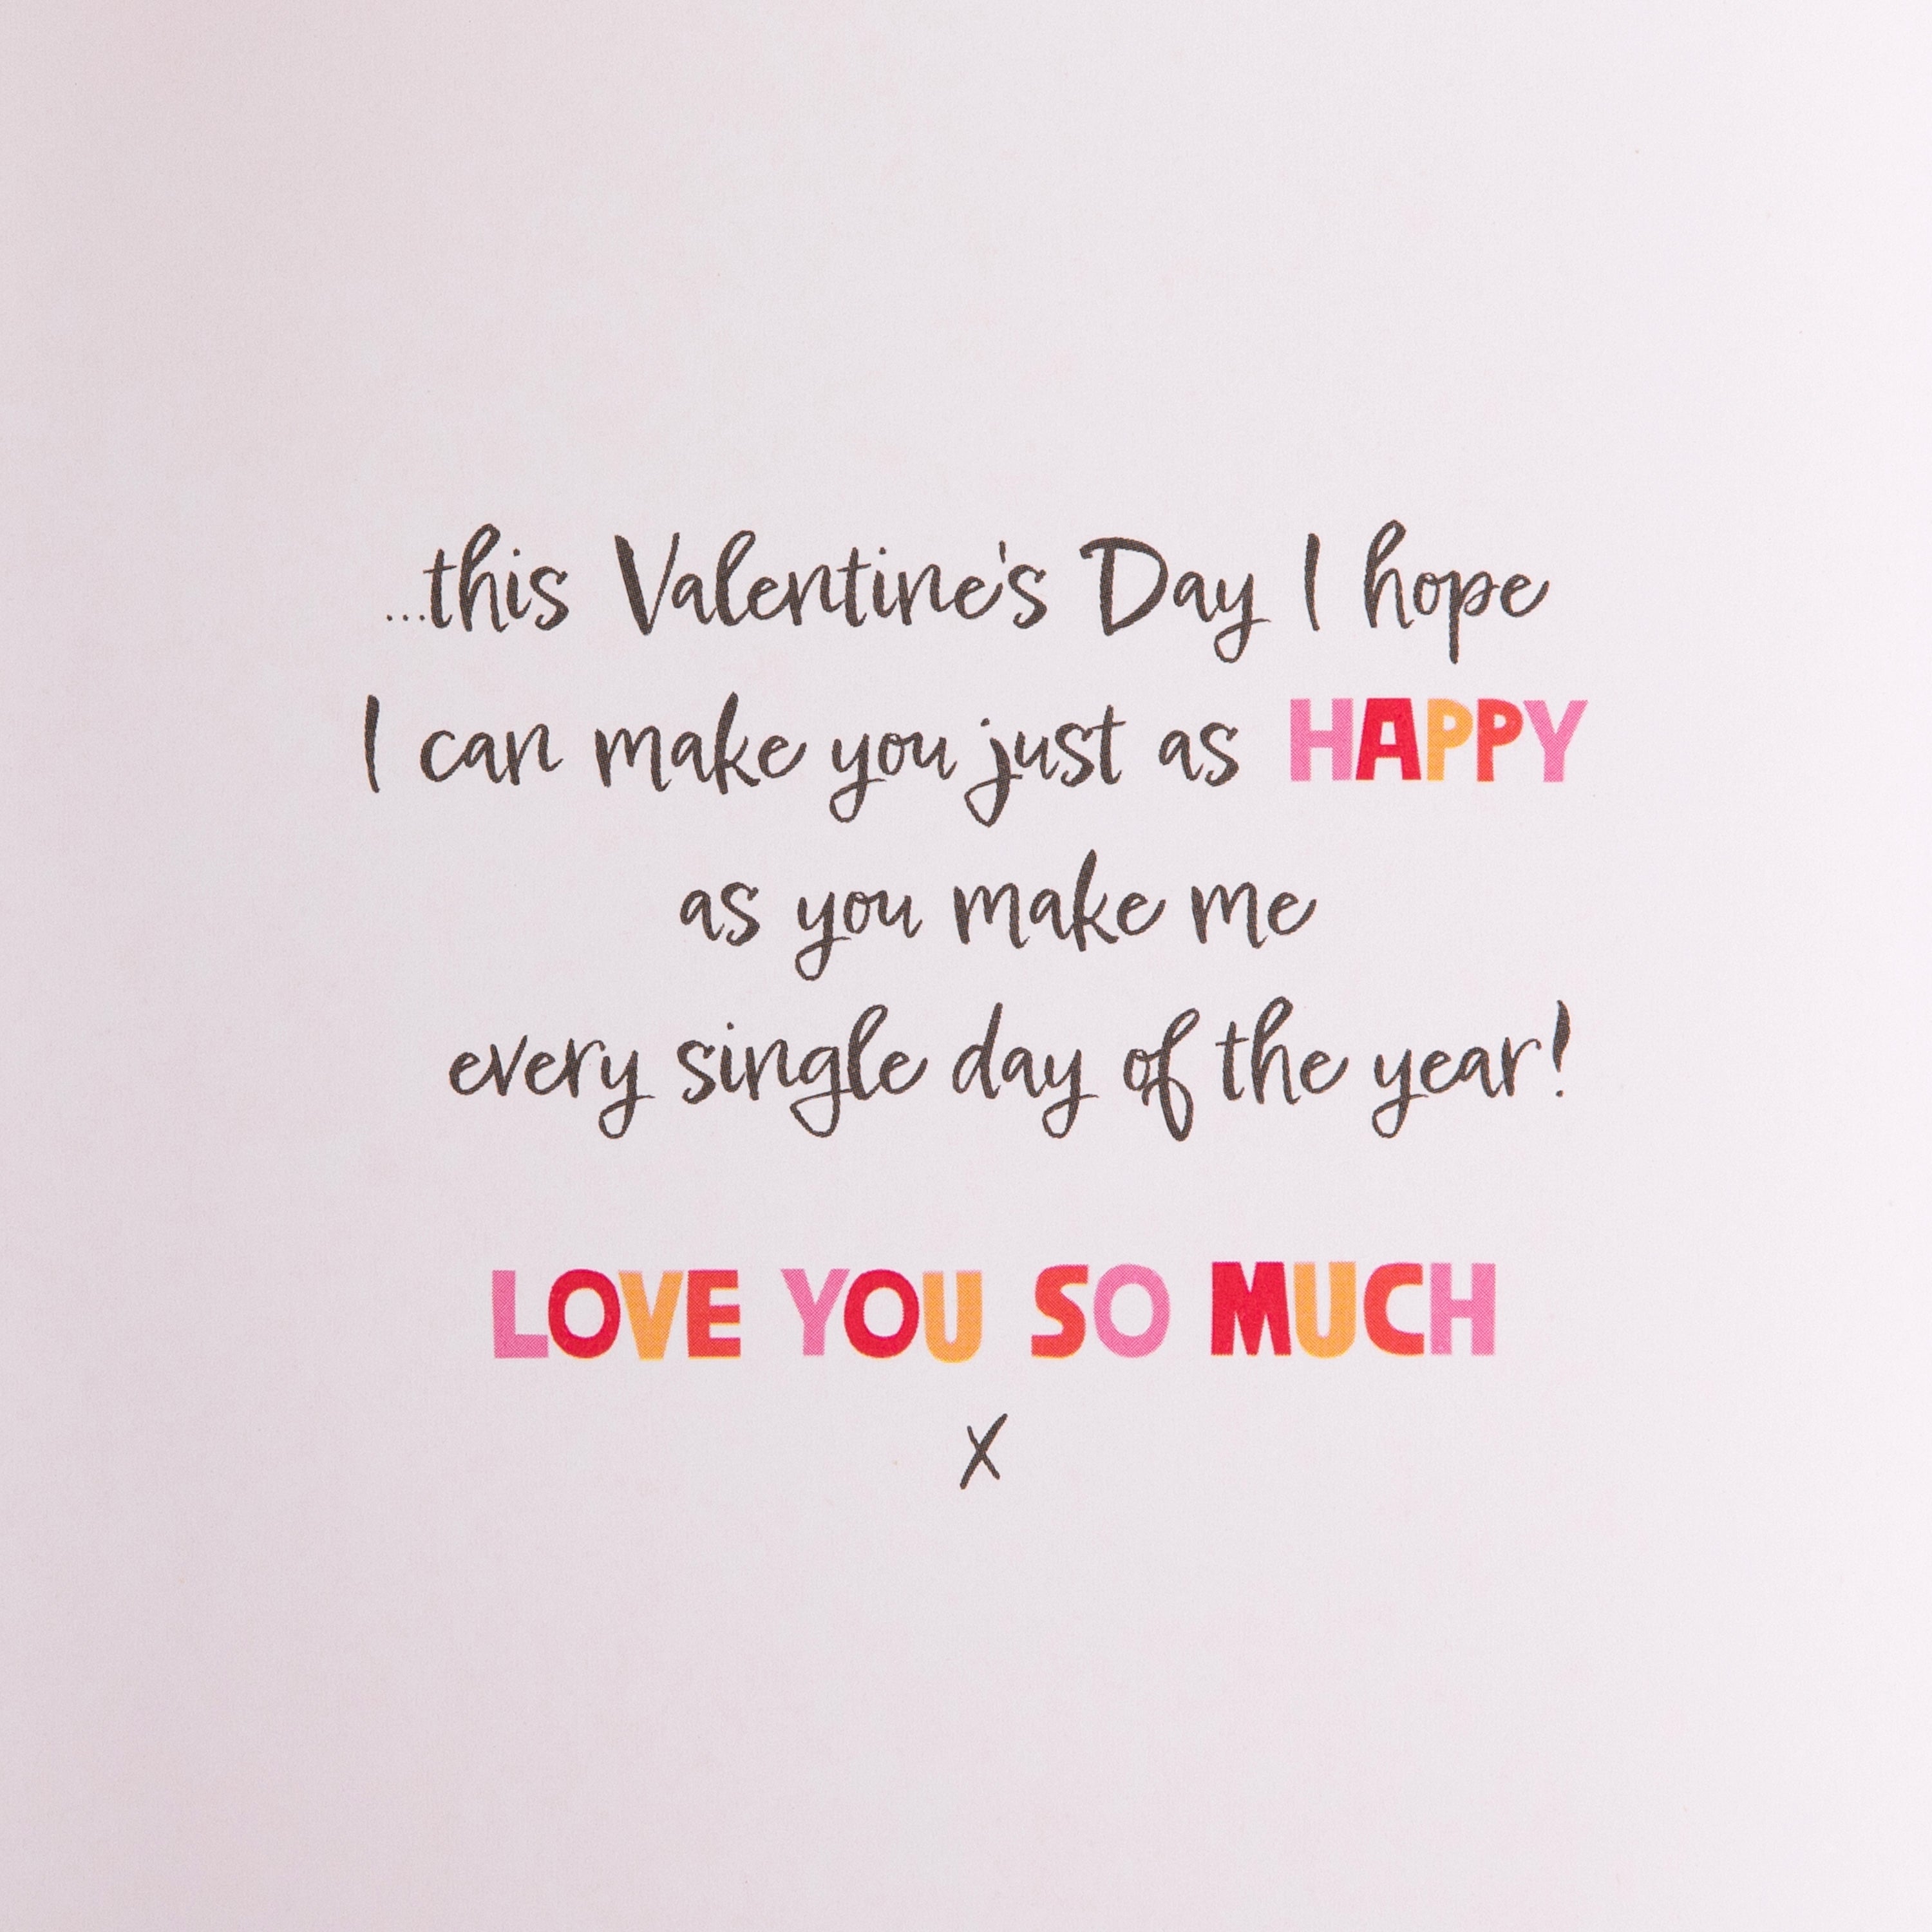 ...this Valentine's Day I hope
I can make you just as HAPPY
as you make me
every single day of the year!
LOVE YOU SO MUCH
x